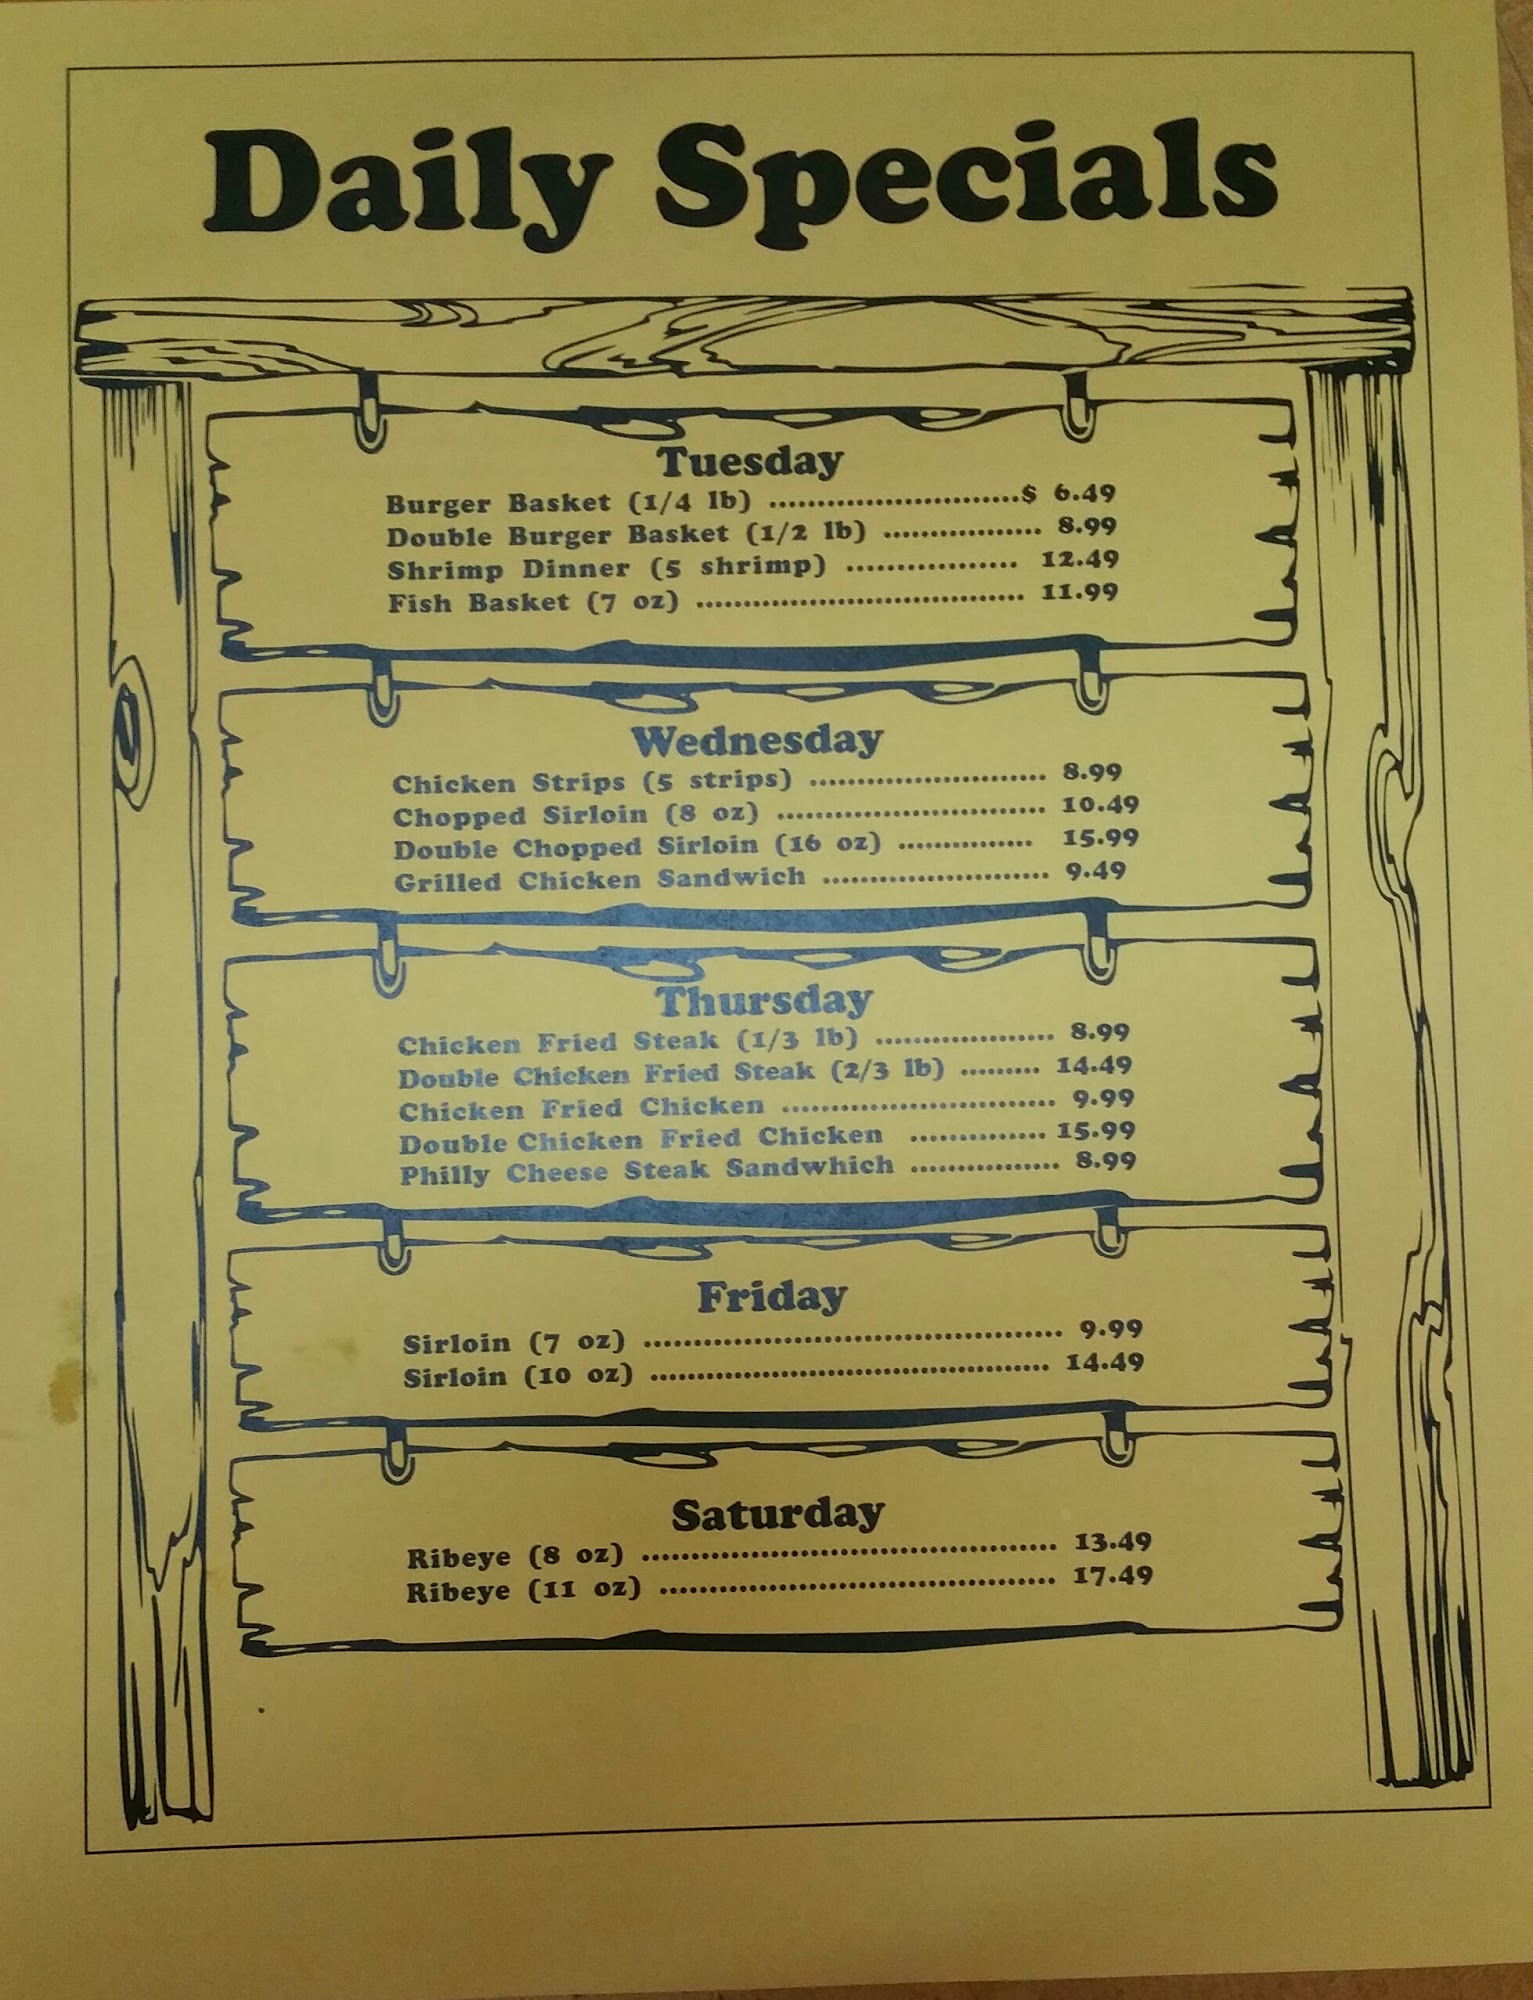 Daily Specials
Tuesday
Burger Basket (1/4 lb) ..........................$ 6.49
Double Burger Basket (1/2 lb) ................. 8.99
Shrimp Dinner (5 shrimp) .................. 12.49
Fish Basket (7 oz) ................................... 11.99
Wednesday
Chicken Strips (5 strips) ......................... 8.99
Chopped Sirloin (8 oz) ............................ 10.49
Double Chopped Sirloin (16 oz) ............... 15.99
Grilled Chicken Sandwich ........................ 9.49
Thursday
Chicken Fried Steak (1/3 lb) ................... 8.99
Double Chicken Fried Steak (2/3 lb) ......... 14.49
Chicken Fried Chicken ............................. 9.99
Double Chicken Fried Chicken ............... 15.99
Philly Cheese Steak Sandwhich ................ 8.99
Friday
Sirloin (7 oz) ............................................ 9.99
Sirloin (10 oz) .......................................... 14.49
Saturday
Ribeye (8 oz) ............................................ 13.49
Ribeye (11 oz) .......................................... 17.49